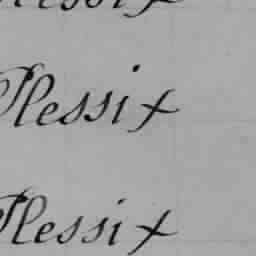 Plessix
Plessix